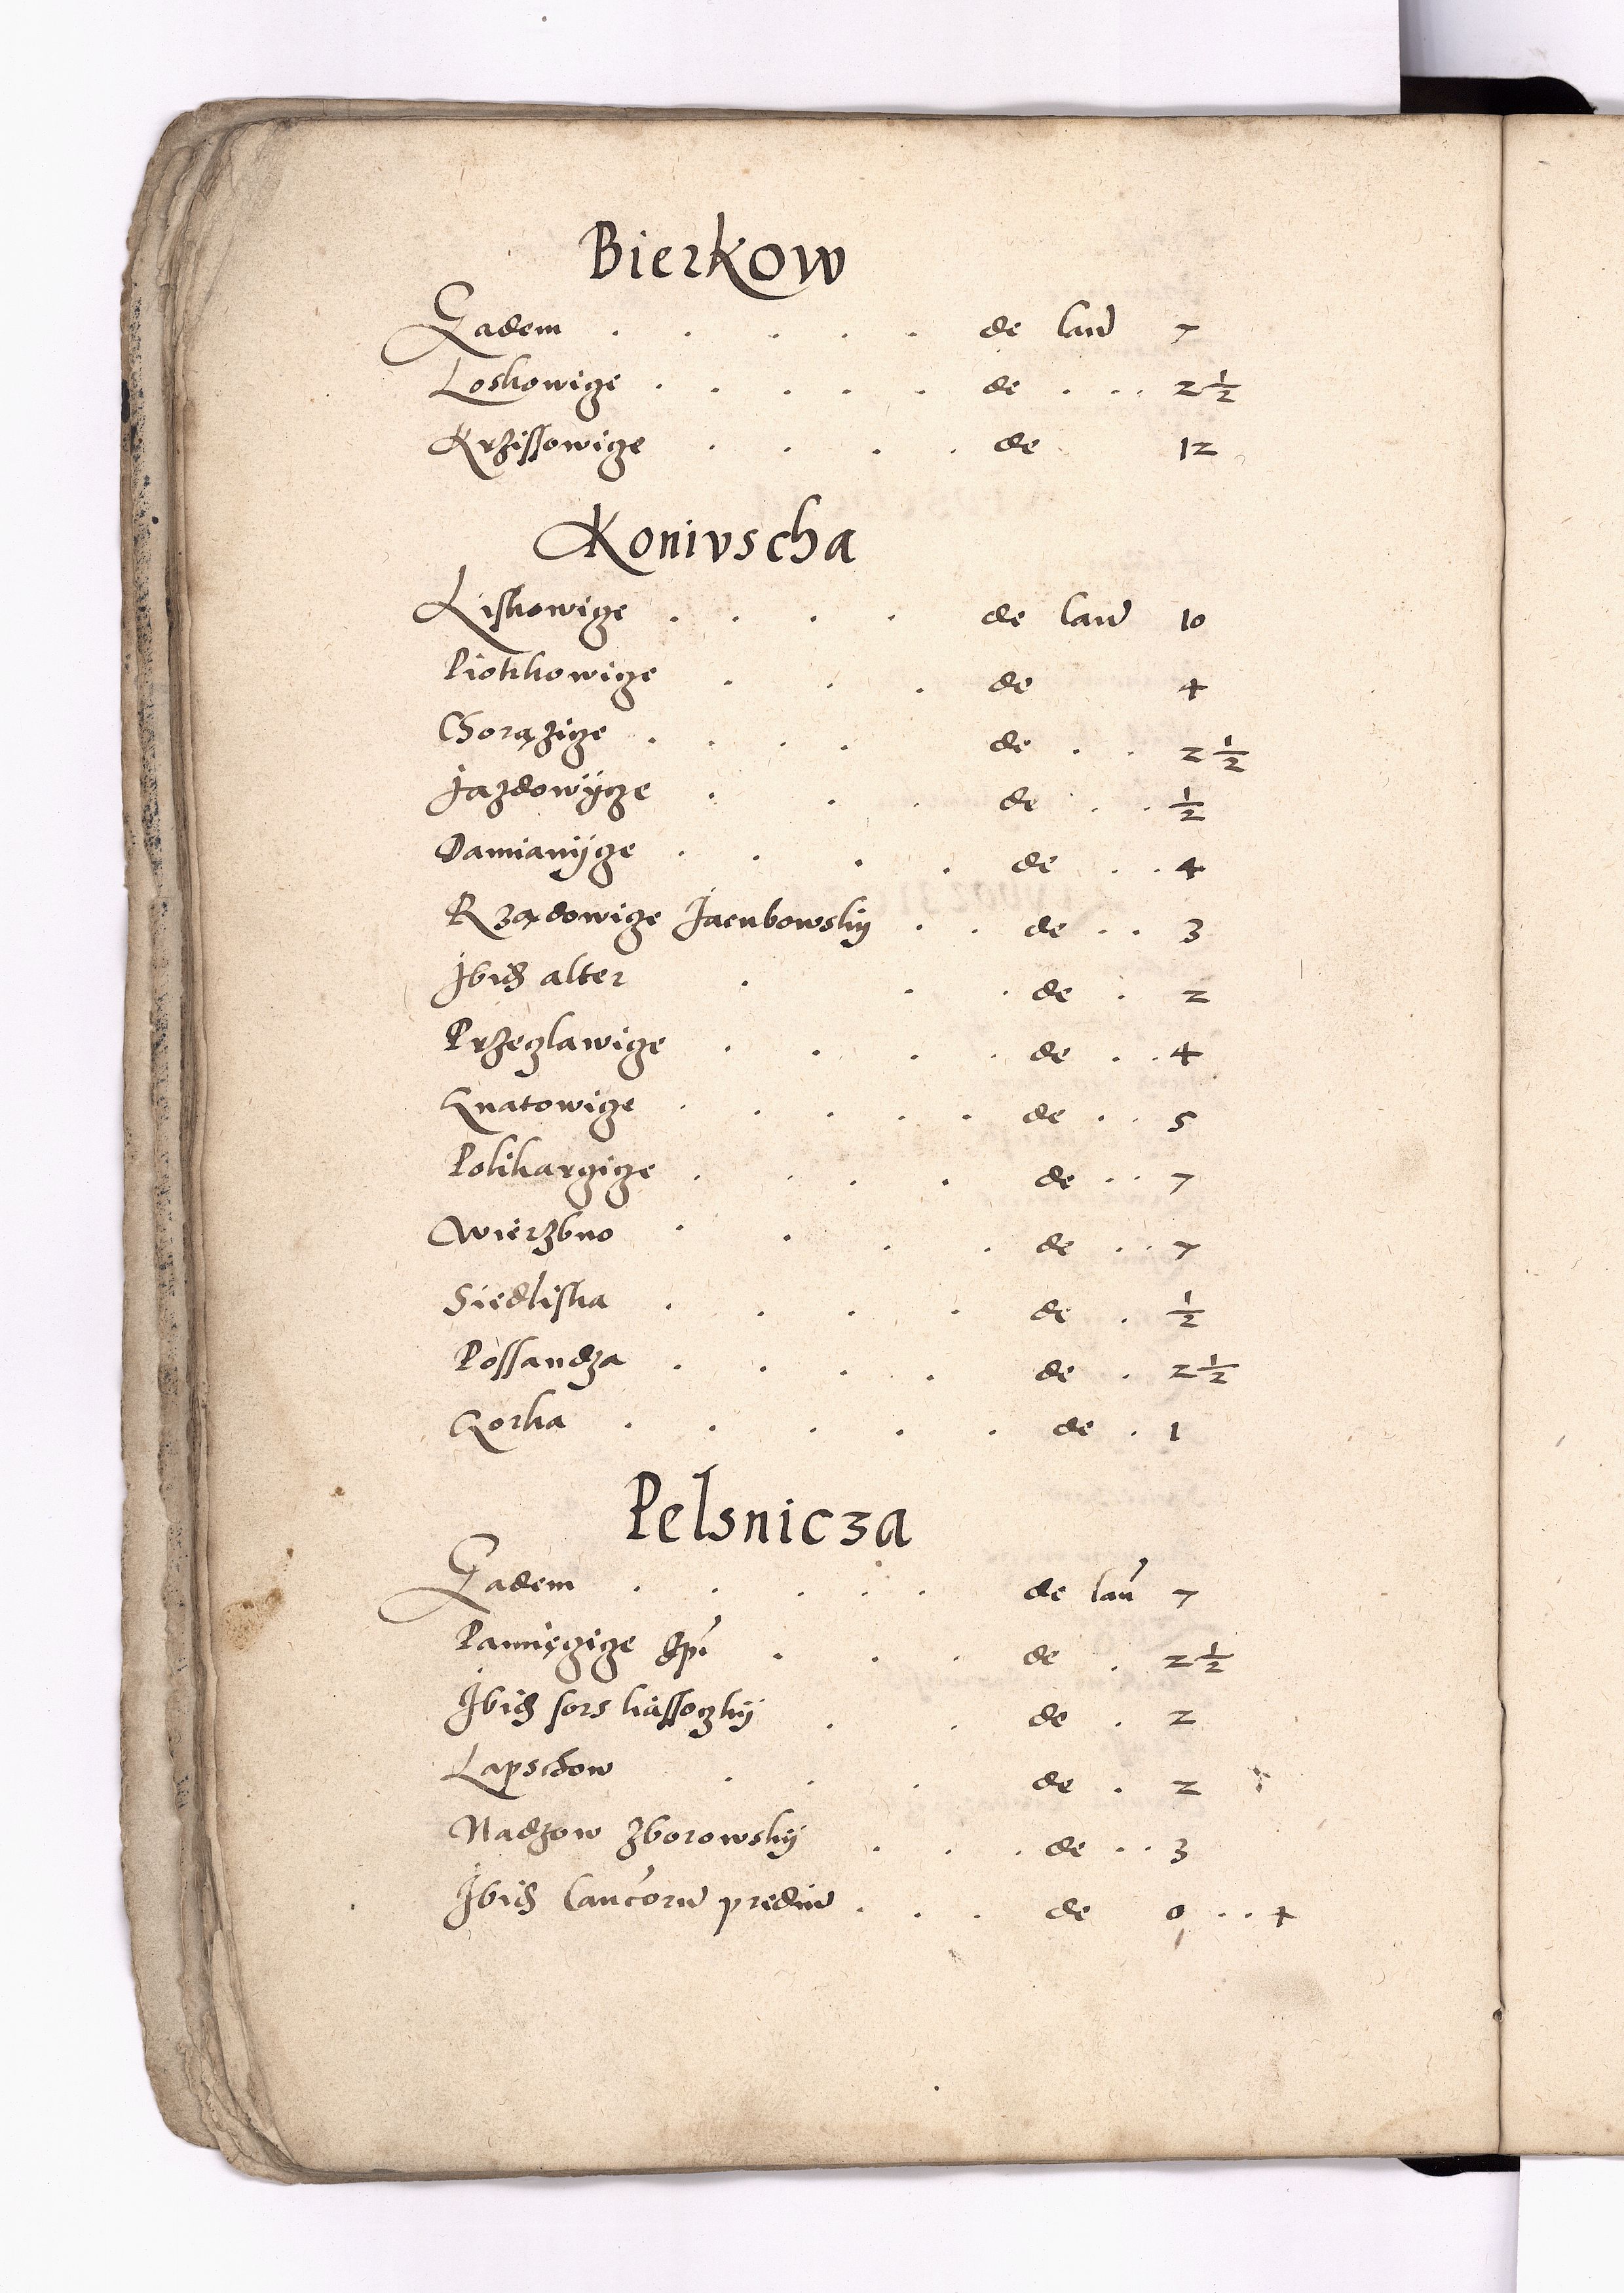 Bierkow
Eadem . . . . . de lan̄ 7
Loskowicze . . . . . de . . . 2 1/2
Krzissowicze . . . . de 12
Konivscha
Liskowicze . . . . de lan̄ 10
Piotrkowicze . . . de 4
Chorązicze . . . . de . . 2 1/2
Jazdowÿcze . . . de . . 1/2
Damianÿcze . . . . de . . 4
Rządowicze Jacubowskÿ . . de . . 3
Ibid̄ alter . . . de . 2
Przeczlawicze . . . . de . . 4
Gnatowicze . . . . . de . . 5
Polikarczicze . . . . de . . 7
Wierzbno . . . . de . . 7
Siedliska . . . . de . 1/2
Possandza . . . . de . 2 1/2
Gorka . . . . . de . 1
Pelsnicza
Eadem . . . . . de lan̄ 7
Pamięczicze . . . de . 2 1/2
Ibid̄ sors kassoczkÿ . . de . 2
Lapschow . . . de . 2
Nadzow Zborowskÿ . . . de . . 3
Ibid̄ Canc̄orū prediū . . . de 0 . . 4